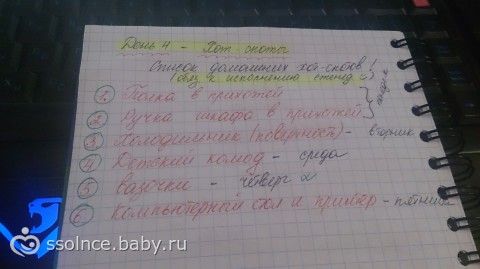 День 4 - Хот-споты
Список домашних хот-спотов!
(обяз. к исполнению ежед.)
1. Полка в прихожей
2. Ручка шкафа в прихожей
3. Холодильник (поверхность) - вторник
4. Детский комод - среда
5. Вазочки - четверг
6. Компьютерный стол и принтер - пятница
ssolnce.baby.ru